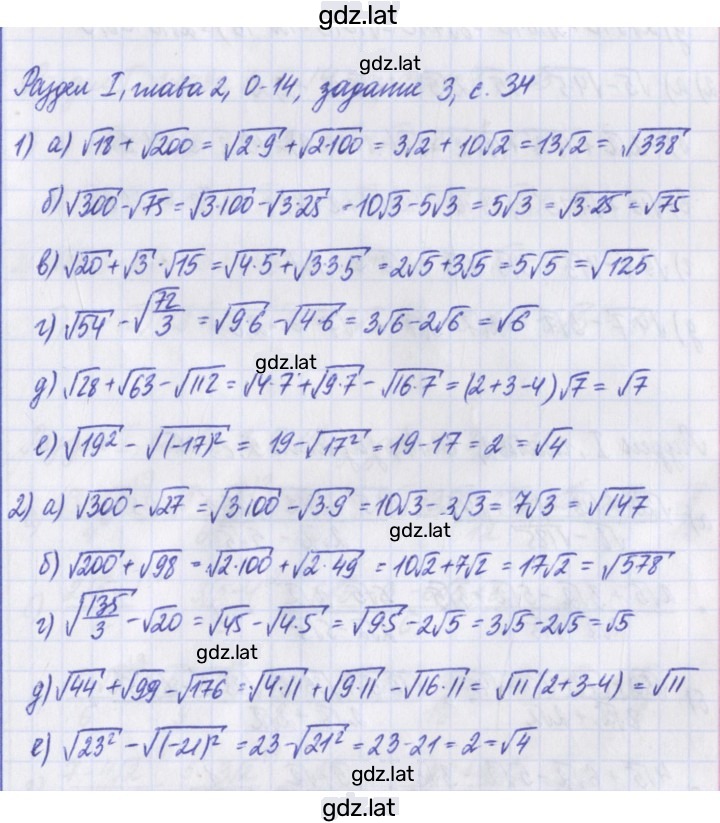 gdz.lat
gdz.lat
Раздел I, глава 2, О-14, задание 3, с. 34
1) а) √18 + √200 = √2·9 + √2·100 = 3√2 + 10√2 = 13√2 = √338
б) √300 - √75 = √3·100 - √3·25 - 10√3 - 5√3 = 5√3 = √3·25 = √75
в) √20 + √3 · √15 = √4·5 + √3·3·5 = 2√5 + 3√5 = 5√5 = √125
г) √54 - √72/3 = √9·6 - √4·6 = 3√6 - 2√6 = √6
gdz.lat
д) √28 + √63 - √112 = √4·7 + √9·7 - √16·7 = (2+3-4)√7 = √7
е) √19² - √(-17)² = 19 - √17² = 19 - 17 = 2 = √4
2) а) √300 - √27 = √3·100 - √3·9 = 10√3 - 3√3 = 7√3 = √147
gdz.lat
б) √200 + √98 = √2·100 + √2·49 = 10√2 + 7√2 = 17√2 = √578
г) √135/3 - √20 = √45 - √4·5 = √9·5 - 2√5 = 3√5 - 2√5 = √5
gdz.lat
д) √44 + √99 - √176 = √4·11 + √9·11 - √16·11 = √11(2+3-4) = √11
е) √23² - √(-21)² = 23 - √21² = 23 - 21 = 2 = √4
gdz.lat
gdz.lat